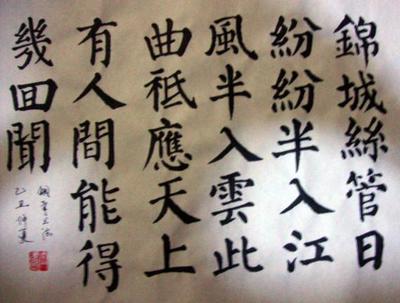 錦城絲管日
紛紛半入江
風半入雲此
曲祗應天上
有人間能得
幾回聞
丑仲夏